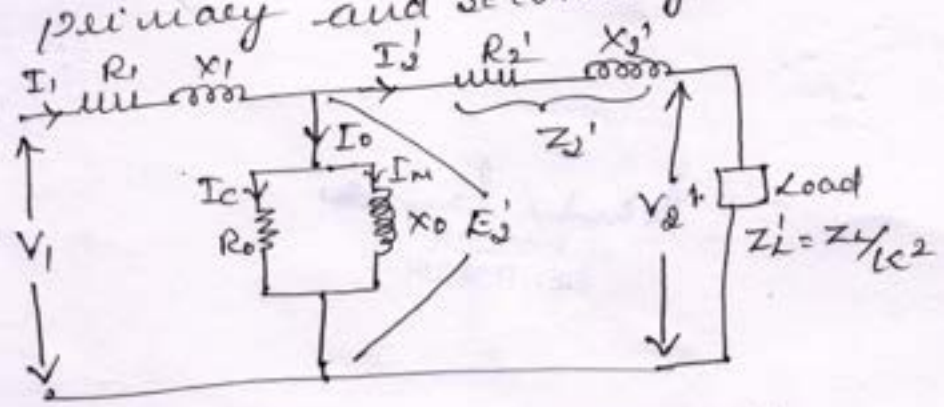 primary and
I₁ R₁ X₁ I₂' R₂' X₂'
I₀ Z₂'
I_C I_M
V₁ R₀ X₀ E₂' V₂' Load
Z_L' = Z_L/K²